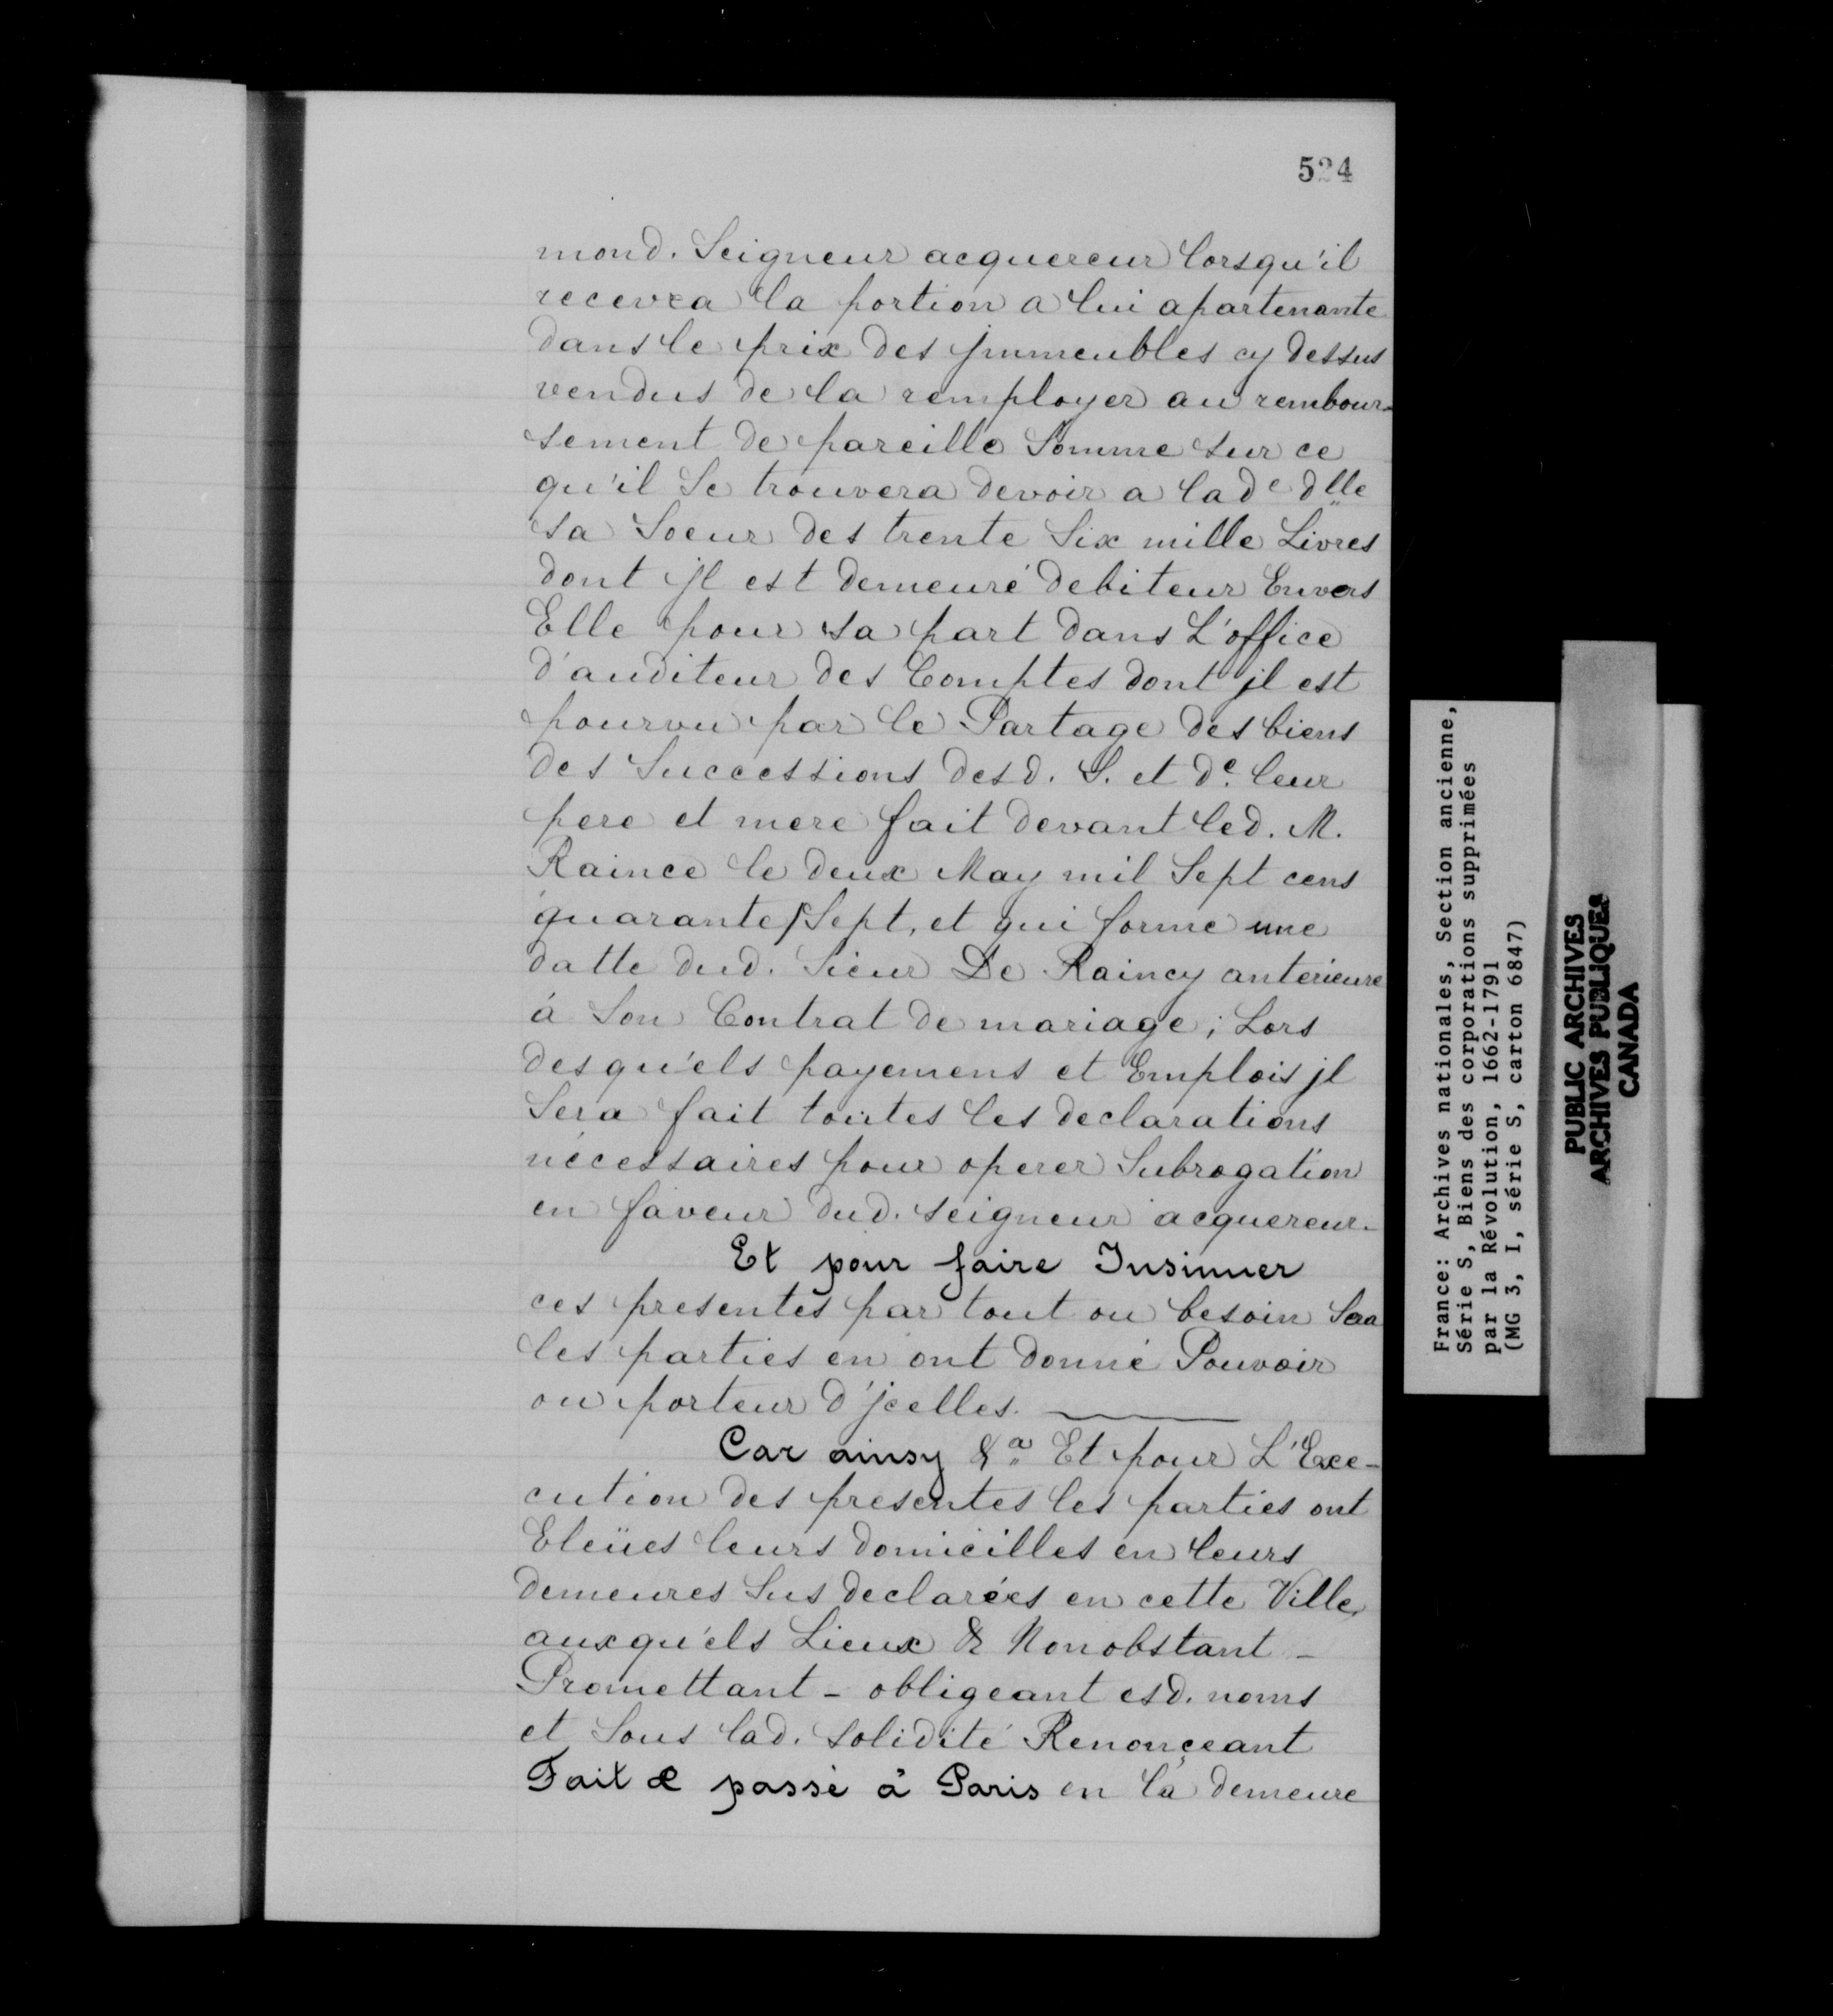 524
mond. Seigneur acquereur lorsqu'il
recevra la portion a lui apartenante
dans le prix des jmmeubles cy dessus
vendus de la remployer au rembour-
sement de pareille Somme sur ce
qu'il Se trouvera devoir a lade dlle
sa Soeur des trente Six mille Livres
dont jl est demeuré debiteur Envers
Elle pour sa part dans L'office
d'auditeur des Comptes dont jl est
pourvu par le Partage des biens
des Successions desd. S. et de. leur
pere et mere fait devant led. M.
Raince le deux May mil Sept cens
quarante Sept, et qui forme une
datte dud. Sieur De Raincy anterieure
á Son Contrat de mariage; Lors
desqu'els payemens et Emplois jl
Sera fait toutes les declarations
nécessaires pour operer Subrogation
en faveur dud. seigneur acquereur.
Et pour faire Insinuer
ces presentes par tout ou besoin Sera
les parties en ont donné Pouvoir
ou porteur d'jcelles.
Car ainsy &a Et pour L'Exe-
cution des presentes les parties ont
Eleües leurs domicilles en leurs
demeures Sus declarées en cette Ville
auxqu'els Lieux & Nonobstant -
Promettant - obligeant esd. noms
et Sous lad. Solidité Renonçeant
Fait & passé à Paris en la demeure
France: Archives nationales, Section ancienne,
Série S, Biens des corporations supprimées
par la Révolution, 1662-1791
(MG 3, I, série S, carton 6847)
PUBLIC ARCHIVES
ARCHIVES PUBLIQUES
CANADA